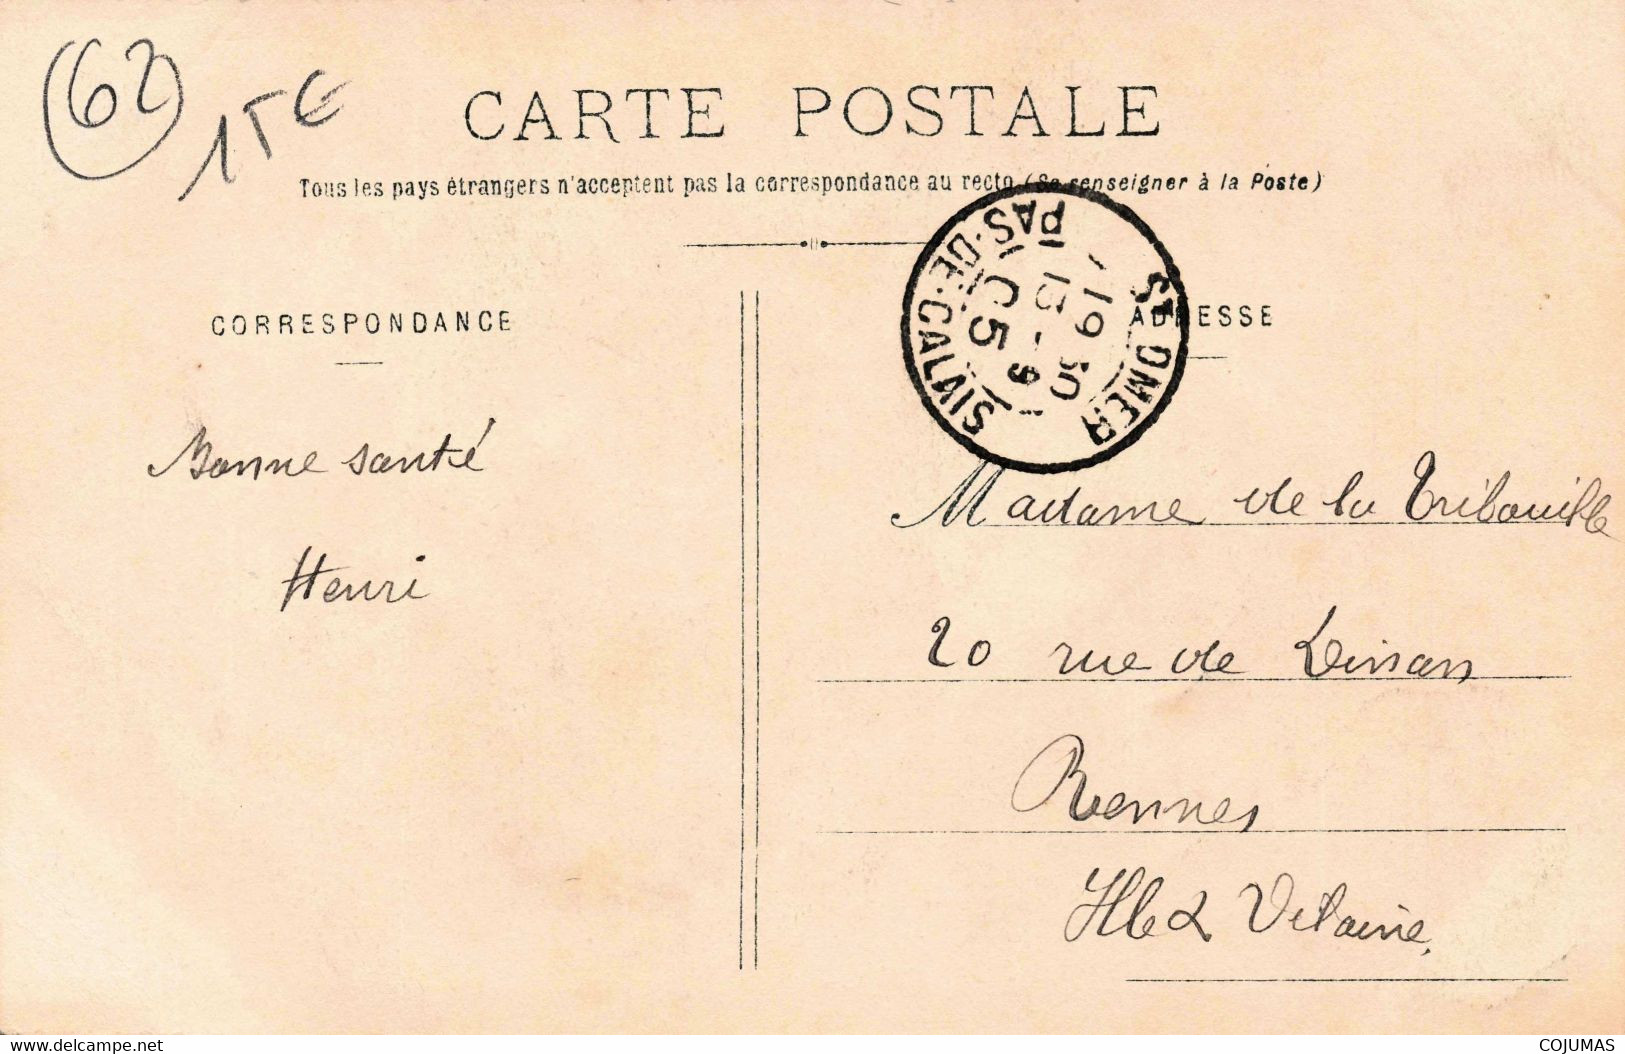 (62)
CARTE POSTALE
Tous les pays étrangers n'acceptent pas la correspondance au recto (Se renseigner à la Poste)
ST OMER
PAS-DE-CALAIS
CORRESPONDANCE
Bonne santé
Henri
ADRESSE
Madame de la Tribouille
20 rue de Dinan
Rennes
Ille & Vilaine.
www.delcampe.net
COJUMAS